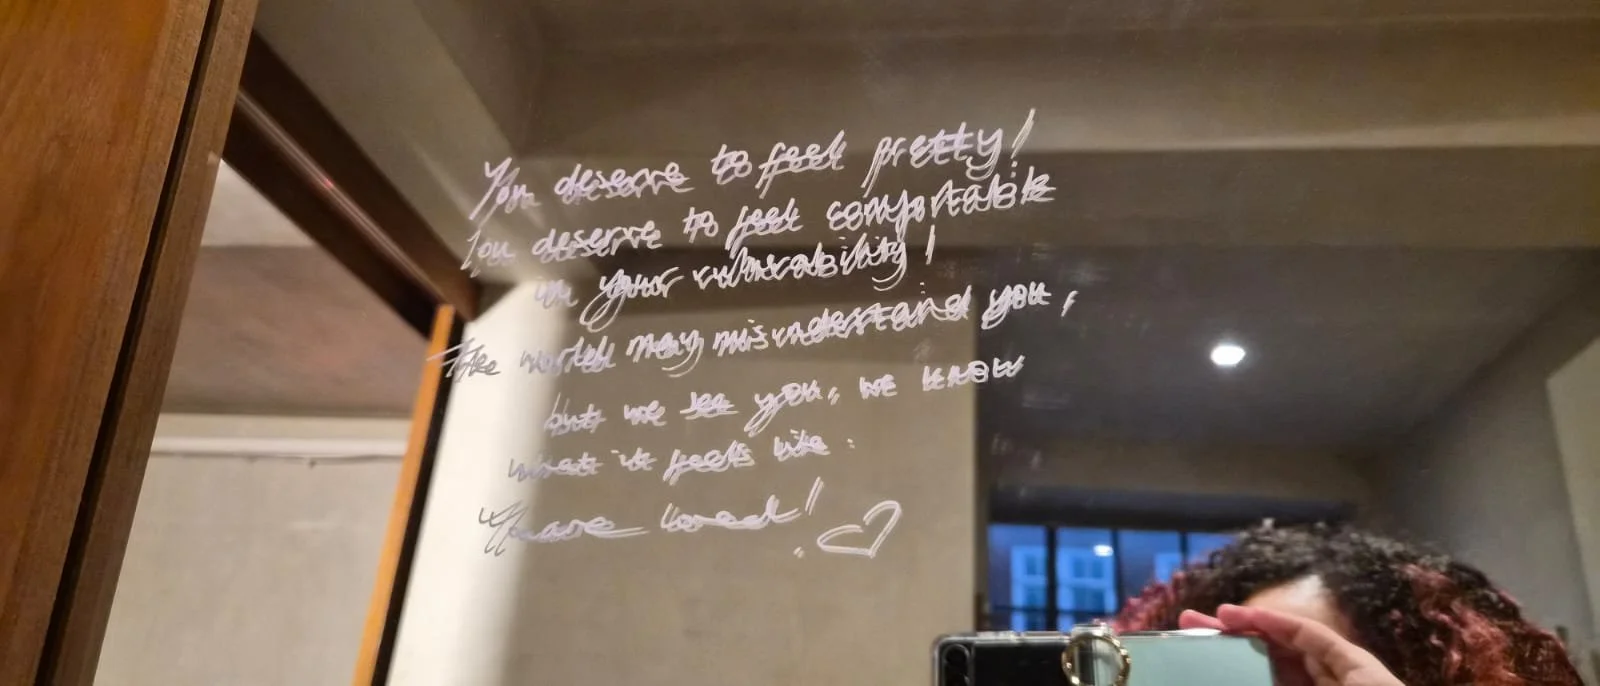 You deserve to feel pretty!
You deserve to feel comfortable
in your vulnerability!
The world may misunderstand you,
but we see you, we know
what it feels like.
You are loved! ♡